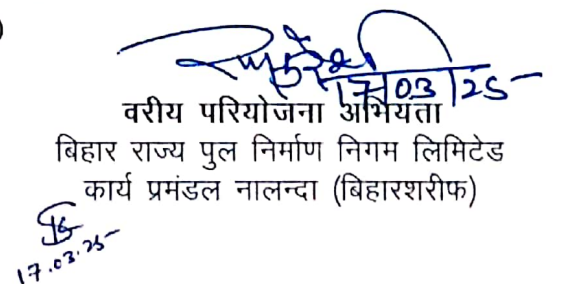 17/03/25
वरीय परियोजना अभियंता
बिहार राज्य पुल निर्माण निगम लिमिटेड
कार्य प्रमंडल नालन्दा (बिहारशरीफ)
17.03.25